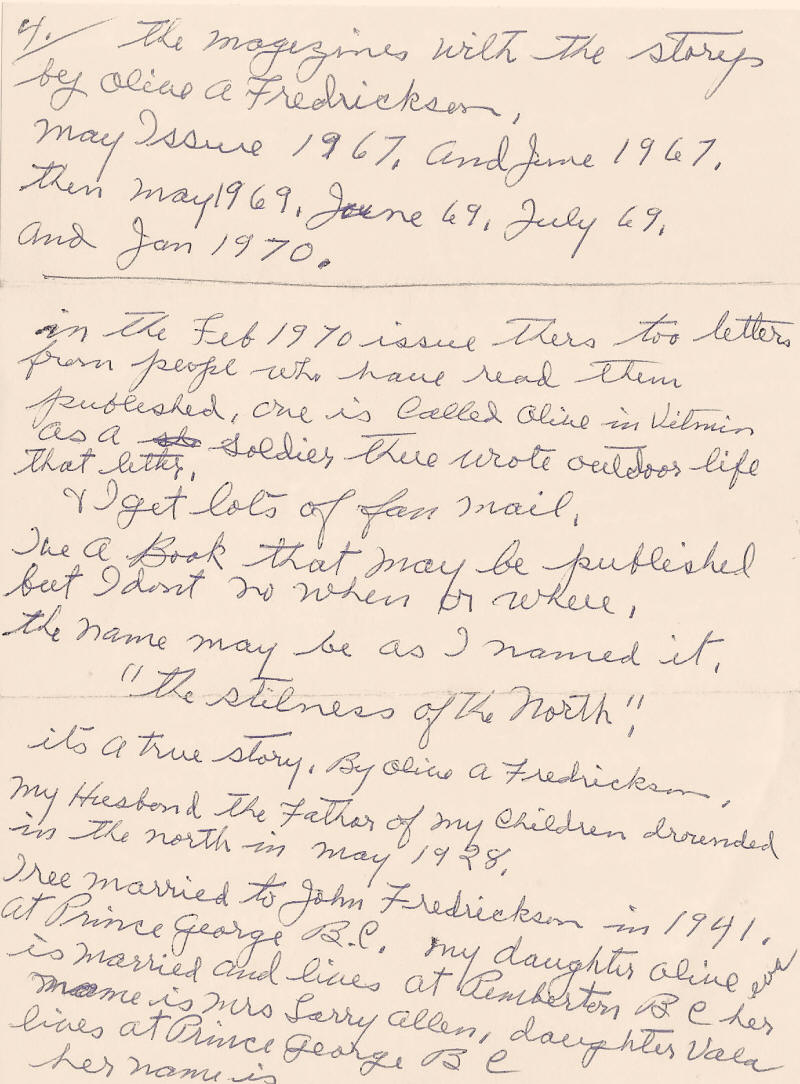 4./ the magezines with the storys
by Olive A Fredrickson,
may Issue 1967, and June 1967,
then may 1969, June 69, July 69,
and Jan 1970.
in the Feb 1970 issue thers too letters
from people who have read them
published, one is Called Olive in Vitmin
as a soldier there wrote outdoor life
that letter,
& I get lots of fan mail,
Ive a Book that may be published
but I dont no when or where,
the name may be as I named it,
"the stilness of the North",
it's a true story, By Olive A Fredrickson,
my Husbond the Father of my Children drownded
in the north in may 1928,
I ree married to John Fredrickson in 1941,
at Prince George B.C, my daughter Olive
is married and lives at Pemberton B C her
name is Mrs Larry Allen, daughter Vala
lives at Prince George B C
her name is